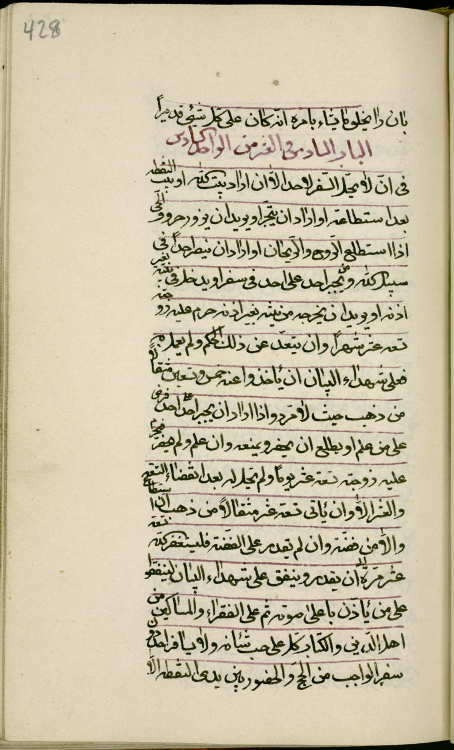 428
بان واخلق ما يشاء بامره انه كان على كل شيئ قديرا
الباب السادس والعشر من الواحد السادس
في ان لا يحل السفر لاحد الا ان اراد بيت الله او بيت النقطة
بعد استطاعته او اراد ان يتجر او يريدان يزور حروف الحي
اذا استطاع الروح والريحان او اراد ان ينصر احدا في
سبيل الله ومن يجبر احد على احد في سفر او يدخل في بيته بغير
اذنه او يريد ان يخرجه من بيته بغير اذنه حرم عليه زوجته
تسعة عشر شهرا وان يتعد عن ذلك الحكم ولم يعمل به
فعلى شهداء البيان ان ياخذوا عنه خمس وتسعين مثقالا
من ذهب حيث لا مرد واذا اراد ان يجبر احد احدا فرض
على من علم او يطلع ان يحضر ويمنعه وان علم ولم يحضر فيحرم
عليه زوجته تسعة عشر يوما ولم يحل له بعد انقضاء التسع
والعشر الا وان ياتى تسعة عشر مثقالا من ذهب ان استطاع
والا من فضة وان لم يقدر على الفضة فليستغفر الله تسعة
عشر مرة الا ان يقدر وينفق على شهداء البيان لينفقوا
على من ياذن باعلى صوته ثم على الفقراء والمساكين من
اهل الدين والكتاب كل على حب شانه ولا يسافر احد في
سفر الواجب من الحج والحضور بين يدى النقطة الا